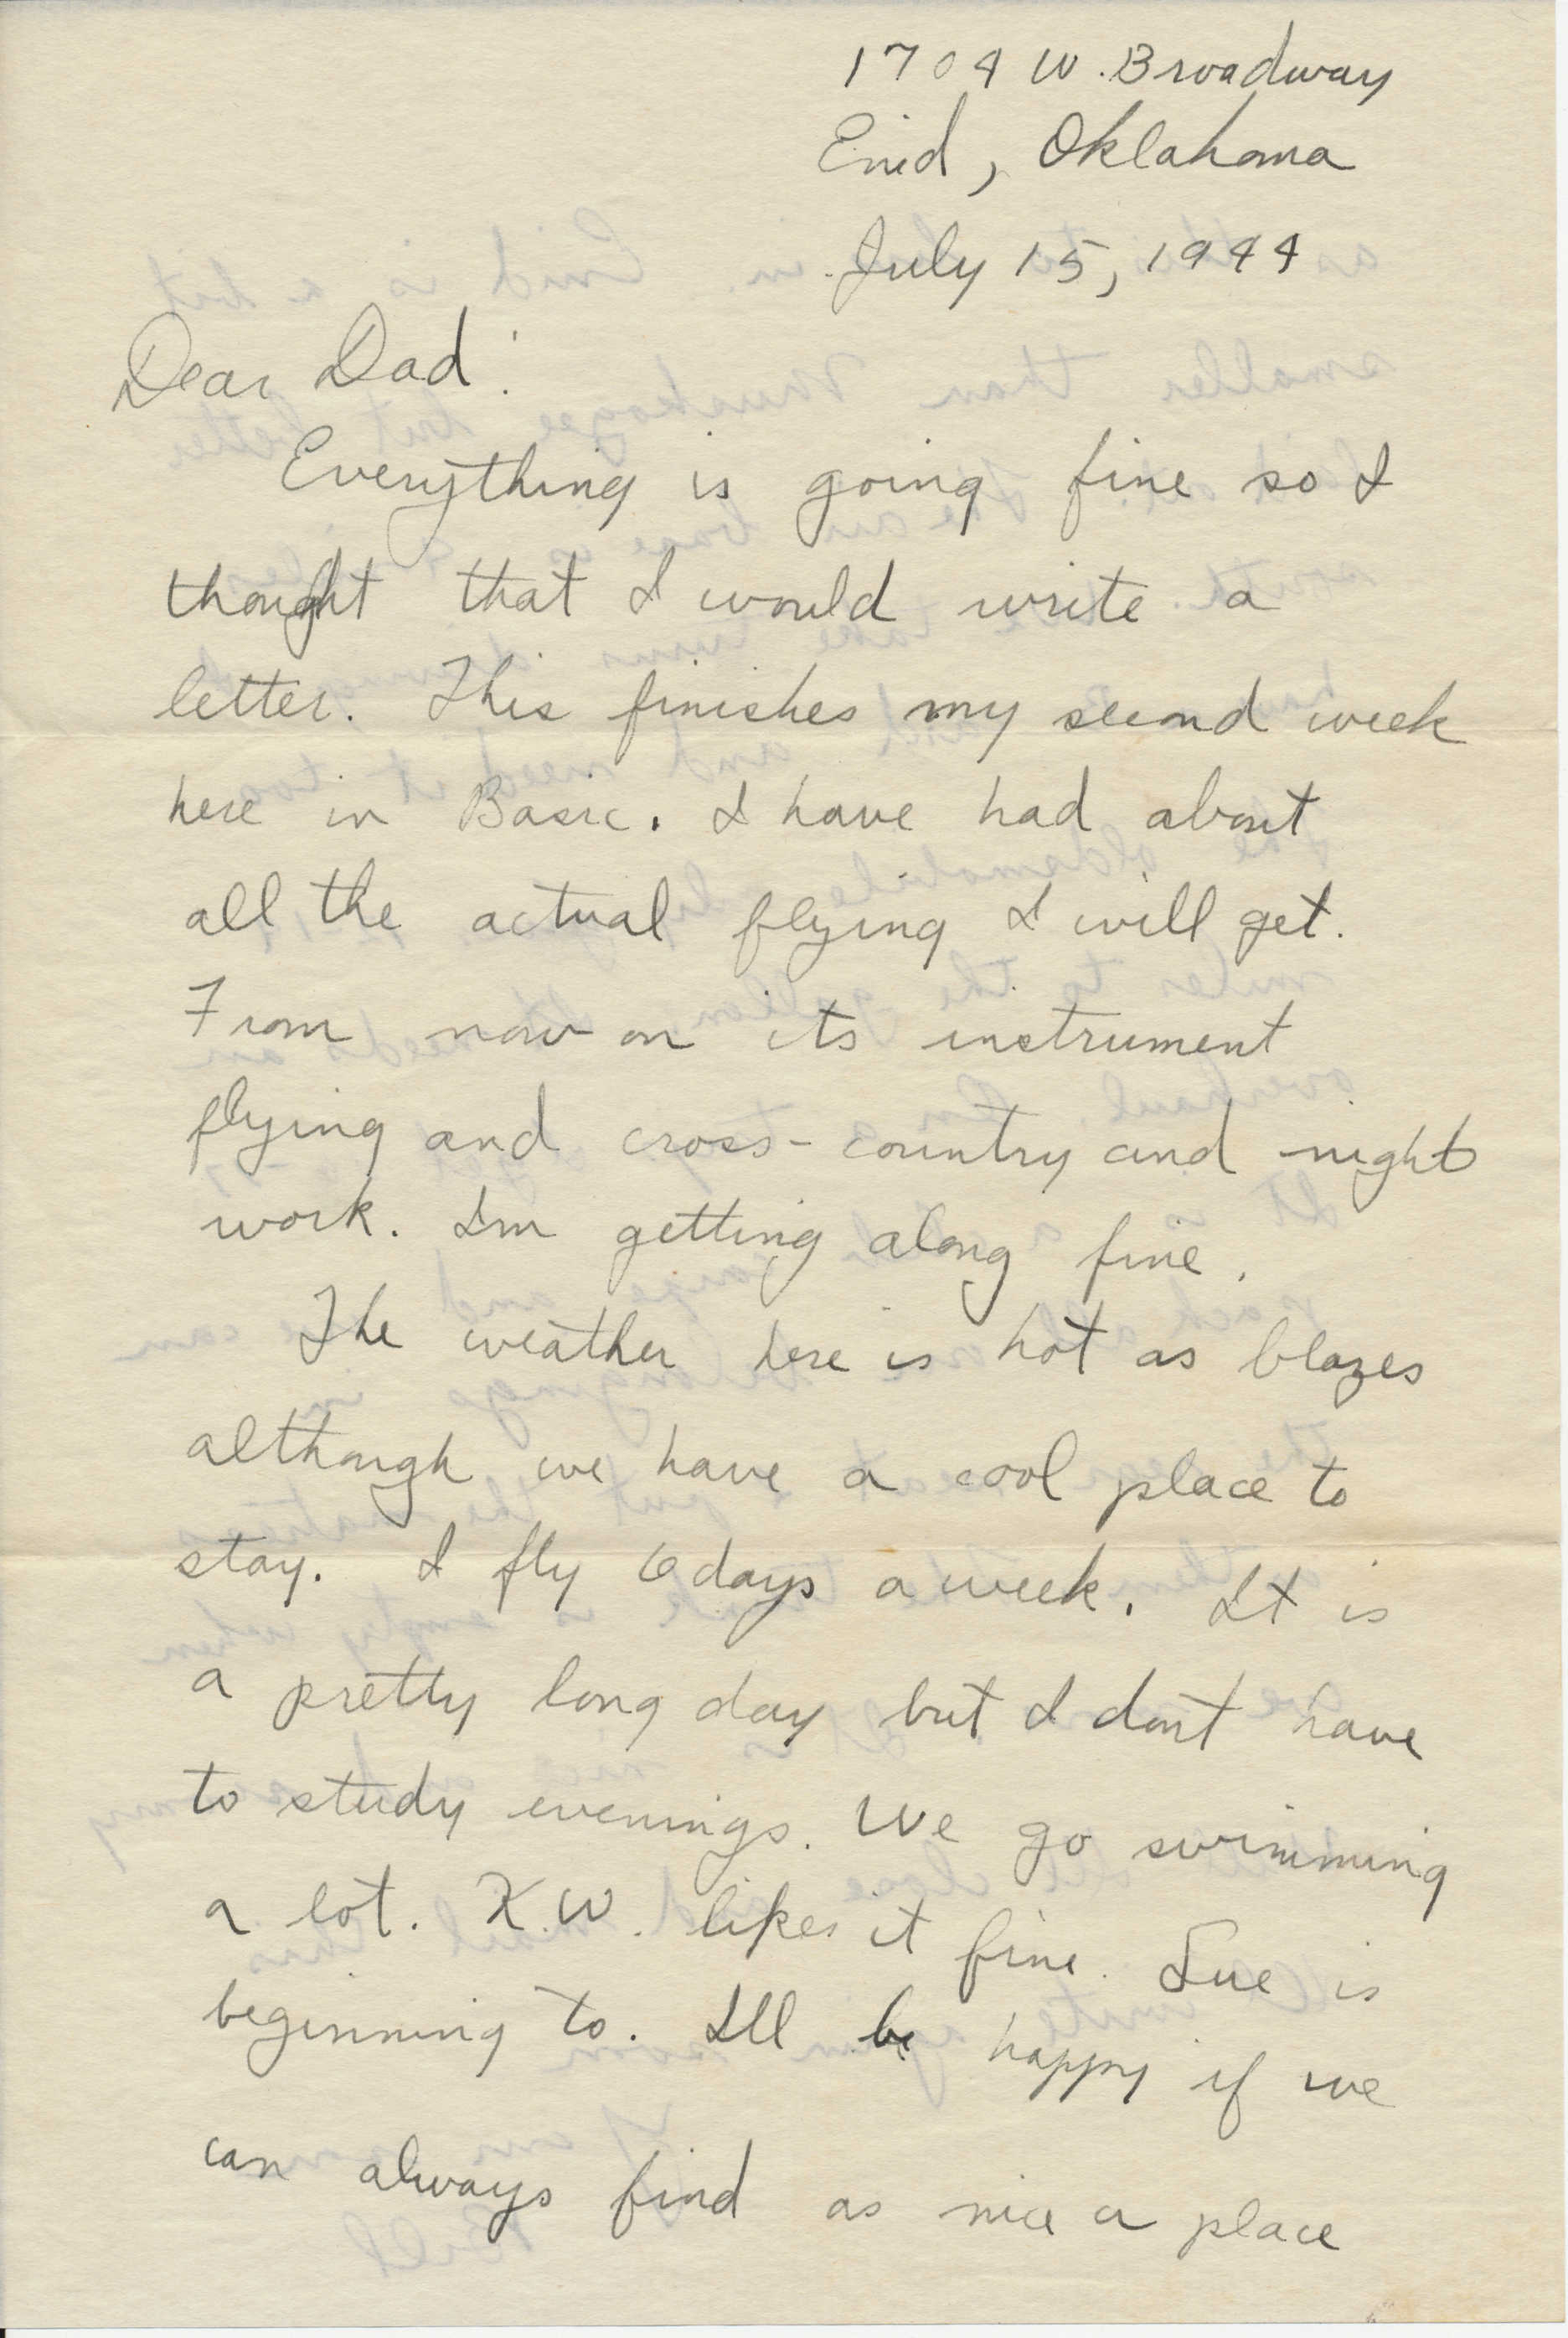 1704 W. Broadway
Enid, Oklahoma
July 15, 1944
Dear Dad:
Everything is going fine so I
thought that I would write a
letter. This finishes my second week
here in Basic. I have had about
all the actual flying I will get.
From now on its instrument
flying and cross-country and night
work. Im getting along fine.
The weather here is hot as blazes
although we have a cool place to
stay. I fly 6 days a week. It is
a pretty long day but I dont have
to study evenings. We go swimming
a lot. K.W. likes it fine. Sue is
beginning to. Ill be happy if we
can always find as nice a place